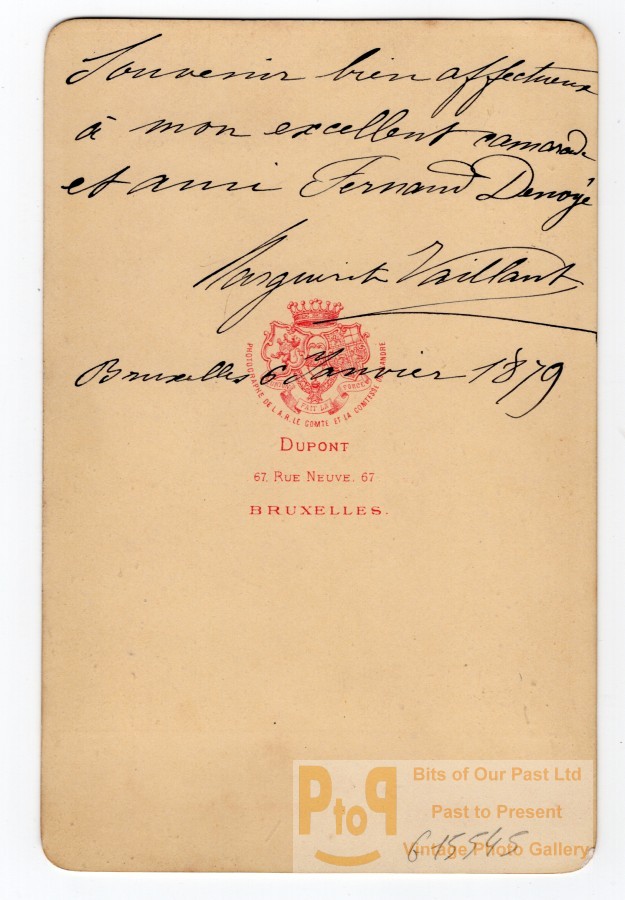 Souvenir bien affectueux
à mon excellent camarade
et ami Fernand Denoyé
Marguerite Vaillant
Bruxelles 6 Janvier 1879
PHOTOGRAPHE DE L.A.R. LE COMTE ET LA COMTESSE DE FLANDRE
DUPONT
67. RUE NEUVE. 67
BRUXELLES.
PtoP
Bits of Our Past Ltd
Past to Present
Vintage Photo Gallery
615545